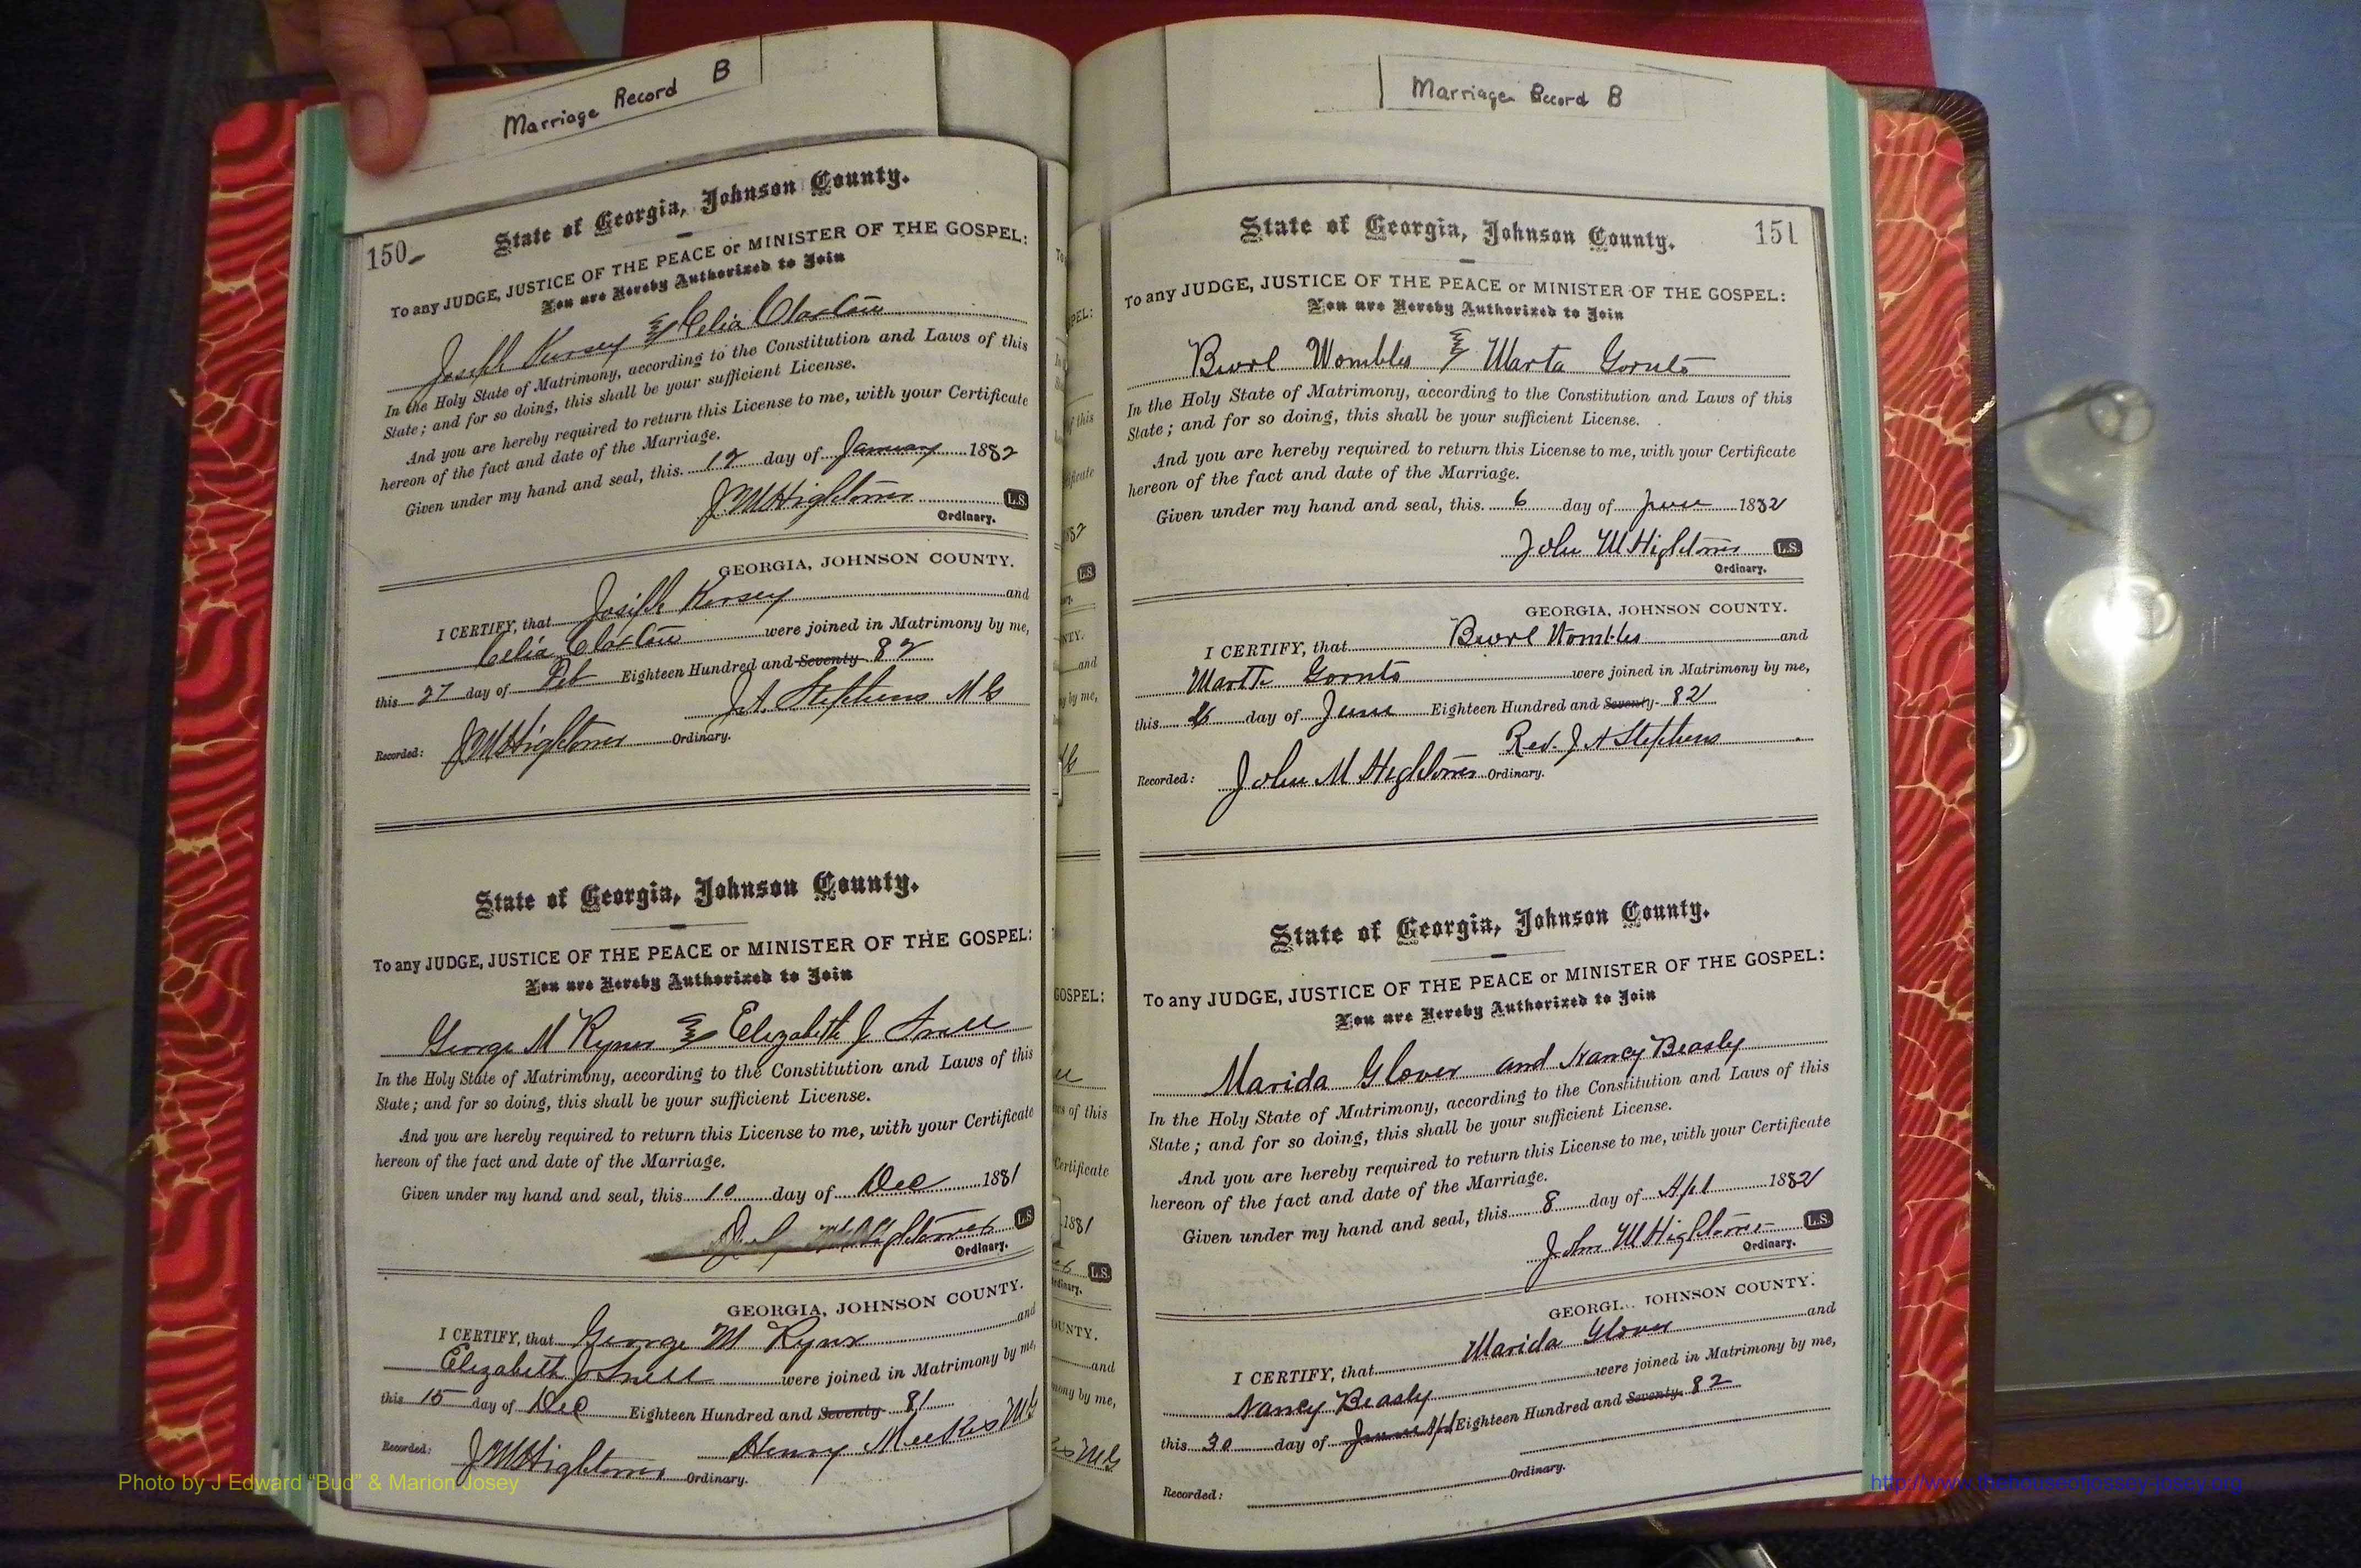 Marriage Record B
150
State of Georgia, Johnson County.
To any JUDGE, JUSTICE OF THE PEACE or MINISTER OF THE GOSPEL:
You are Hereby Authorized to Join
Joseph Kersey & Celia Claxton
In the Holy State of Matrimony, according to the Constitution and Laws of this
State; and for so doing, this shall be your sufficient License.
And you are hereby required to return this License to me, with your Certificate
hereon of the fact and date of the Marriage.
Given under my hand and seal, this 12 day of January 1882
J M Hightower L.S.
Ordinary.
GEORGIA, JOHNSON COUNTY.
I CERTIFY, that Joseph Kersey and
Celia Claxton were joined in Matrimony by me,
this 27 day of Feb Eighteen Hundred and Seventy 82
J. A. Stephens M G
Recorded: J M Hightower Ordinary.
State of Georgia, Johnson County.
To any JUDGE, JUSTICE OF THE PEACE or MINISTER OF THE GOSPEL:
You are Hereby Authorized to Join
George M Ryner & Elizabeth J Snell
In the Holy State of Matrimony, according to the Constitution and Laws of this
State; and for so doing, this shall be your sufficient License.
And you are hereby required to return this License to me, with your Certificate
hereon of the fact and date of the Marriage.
Given under my hand and seal, this 10 day of Dec 1881
Hightower L.S.
Ordinary.
GEORGIA, JOHNSON COUNTY.
I CERTIFY, that George M Rynr and
Elizabeth J Snell were joined in Matrimony by me,
this 15 day of Dec Eighteen Hundred and Seventy 81
Henry Meeks M G
Recorded: J M Hightower Ordinary.
Marriage Record B
151
State of Georgia, Johnson County.
To any JUDGE, JUSTICE OF THE PEACE or MINISTER OF THE GOSPEL:
You are Hereby Authorized to Join
Burl Wombles & Marta Gornto
In the Holy State of Matrimony, according to the Constitution and Laws of this
State; and for so doing, this shall be your sufficient License.
And you are hereby required to return this License to me, with your Certificate
hereon of the fact and date of the Marriage.
Given under my hand and seal, this 6 day of June 1882
John M Hightower L.S.
Ordinary.
GEORGIA, JOHNSON COUNTY.
I CERTIFY, that Burl Wombles and
Martt Gornto were joined in Matrimony by me,
this day of June Eighteen Hundred and Seventy 82
Rev. J A Stephens
Recorded: John M Hightower Ordinary.
State of Georgia, Johnson County.
To any JUDGE, JUSTICE OF THE PEACE or MINISTER OF THE GOSPEL:
You are Hereby Authorized to Join
Marida Glover and Nancy Beasly
In the Holy State of Matrimony, according to the Constitution and Laws of this
State; and for so doing, this shall be your sufficient License.
And you are hereby required to return this License to me, with your Certificate
hereon of the fact and date of the Marriage.
Given under my hand and seal, this 8 day of Apl 1882
John M Hightower L.S.
Ordinary.
GEORGI.. JOHNSON COUNTY.
I CERTIFY, that Marida Glover and
Nancy Beasly were joined in Matrimony by me,
this 30 day of June Apl Eighteen Hundred and Seventy 82
Recorded: Ordinary.
Photo by J Edward "Bud" & Marion Josey
http://www.thehouseofjossey-josey.org